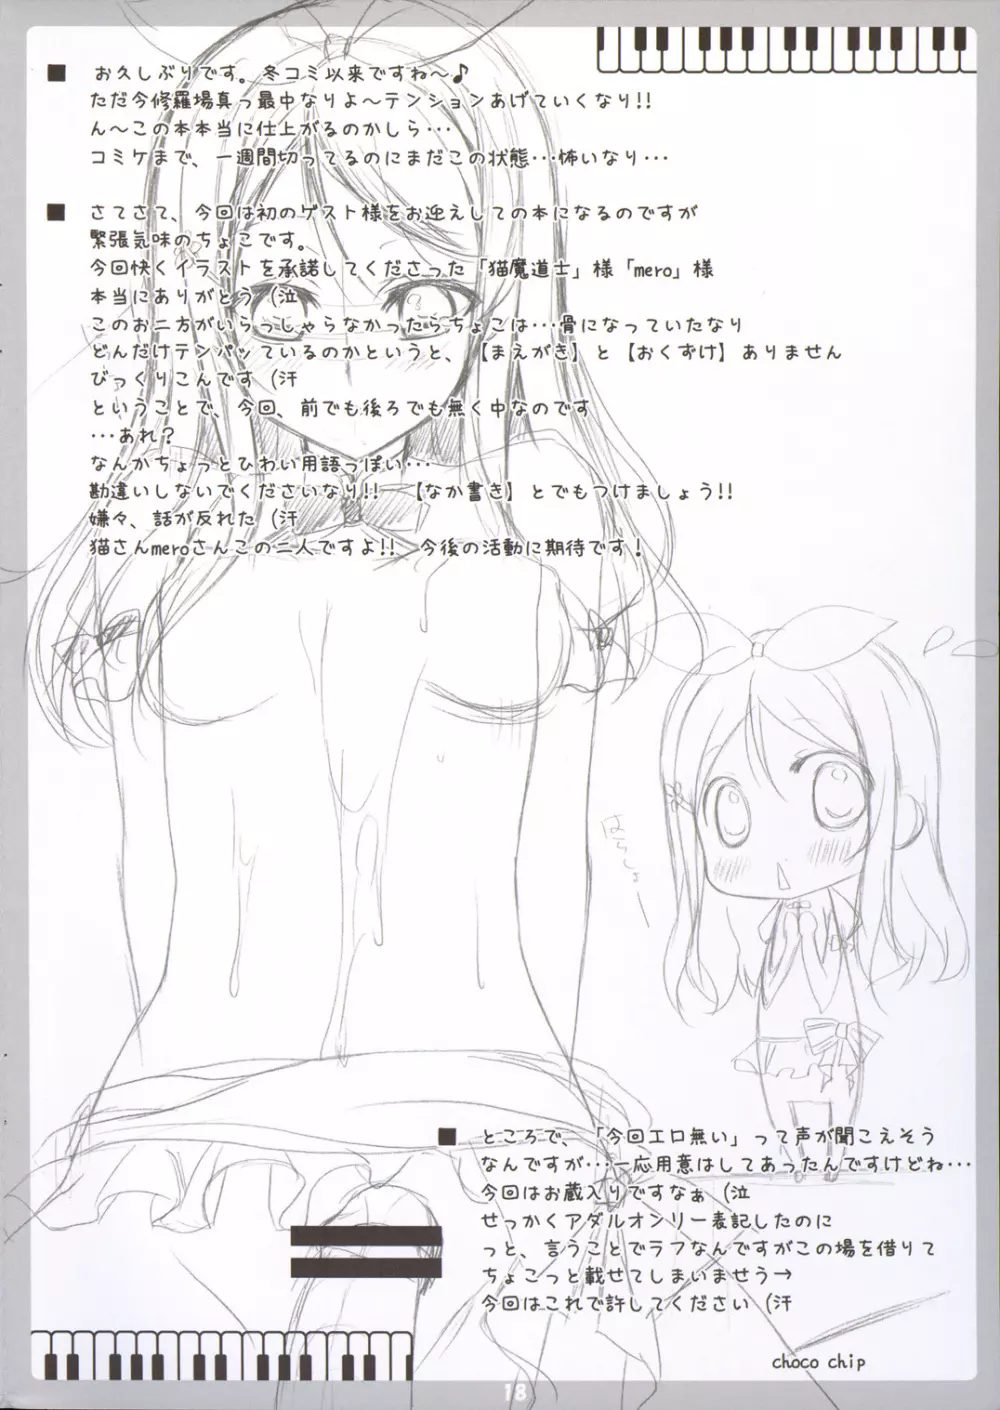 ■ お久しぶりです。冬コミ以来ですね～♪
ただ今修羅場真っ最中なりよ～テンションあげていくなり!!
ん～この本本当に仕上がるのかしら…
コミケまで、一週間切ってるのにまだこの状態…怖いなり…
■ さてさて、今回は初のゲスト様をお迎えしての本になるのですが
緊張気味のちょこです。
今回快くイラストを承諾してくださった「猫魔道士」様「mero」様
本当にありがとう (泣
このお二方がいらっしゃらなかったらちょこは…骨になっていたなり
どんだけテンパッているのかというと、【まえがき】と【おくずけ】ありません
びっくりこんです (汗
ということで、今回、前でも後ろでも無く中なのです
…あれ?
なんかちょっとひわい用語っぽい…
勘違いしないでくださいなり!! 【なか書き】とでもつけましょう!!
嫌々、話が反れた (汗
猫さんmeroさんこの二人ですよ!! 今後の活動に期待です!
はらしょー
■ ところで、「今回エロ無い」って声が聞こえそう
なんですが…一応用意はしてあったんですけどね…
今回はお蔵入りですなぁ (泣
せっかくアダルオンリー表記したのに
っと、言うことでラフなんですがこの場を借りて
ちょこっと載せてしまいませう→
今回はこれで許してください (汗
choco chip
18